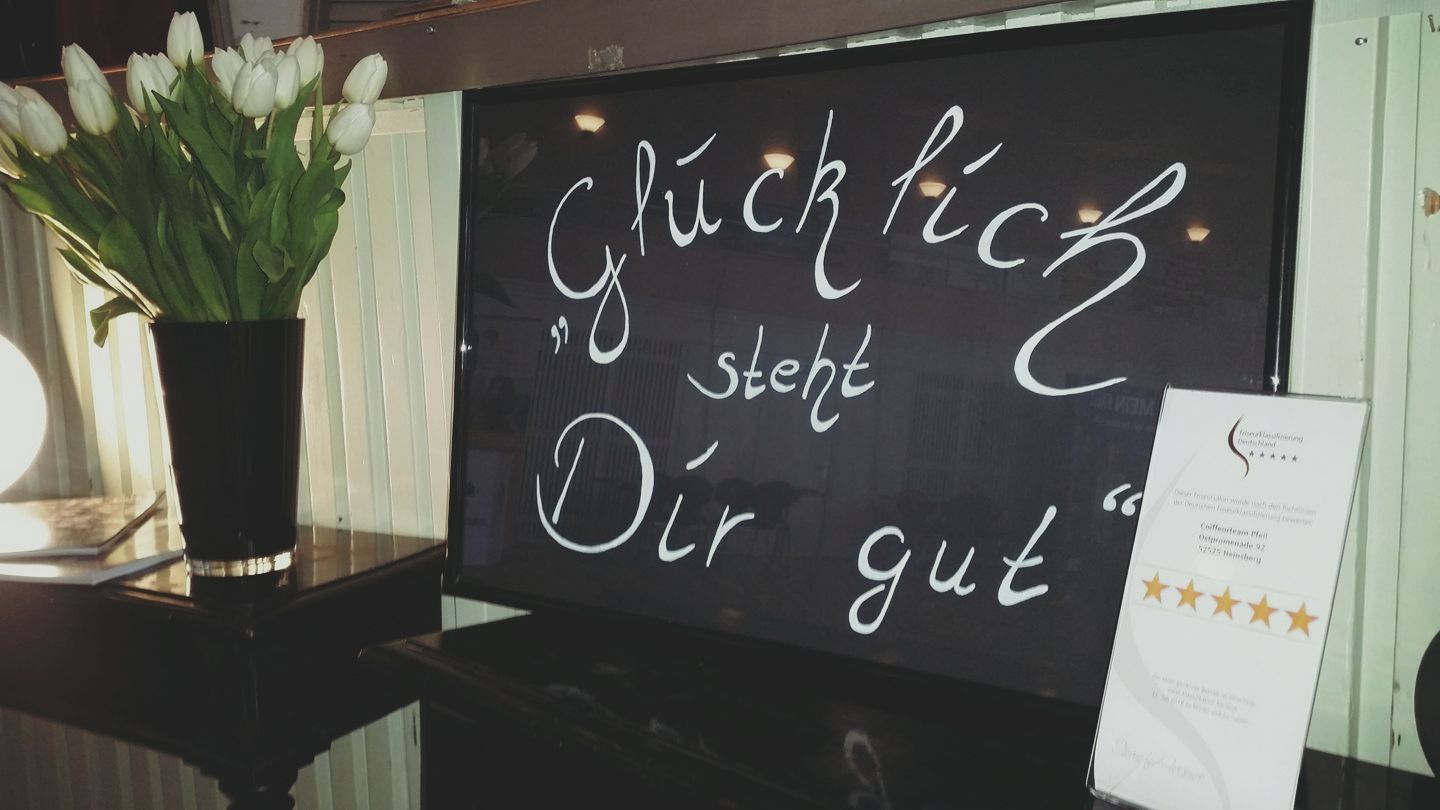 Glücklich
„steht
Dir gut“
Friseurklassifizierung
Deutschland
Dieser Friseursalon wurde nach den Richtlinien
der Deutschen Friseurklassifizierung bewertet:
Coiffeurteam Pfeil
Ostpromenade 92
52525 Heinsberg